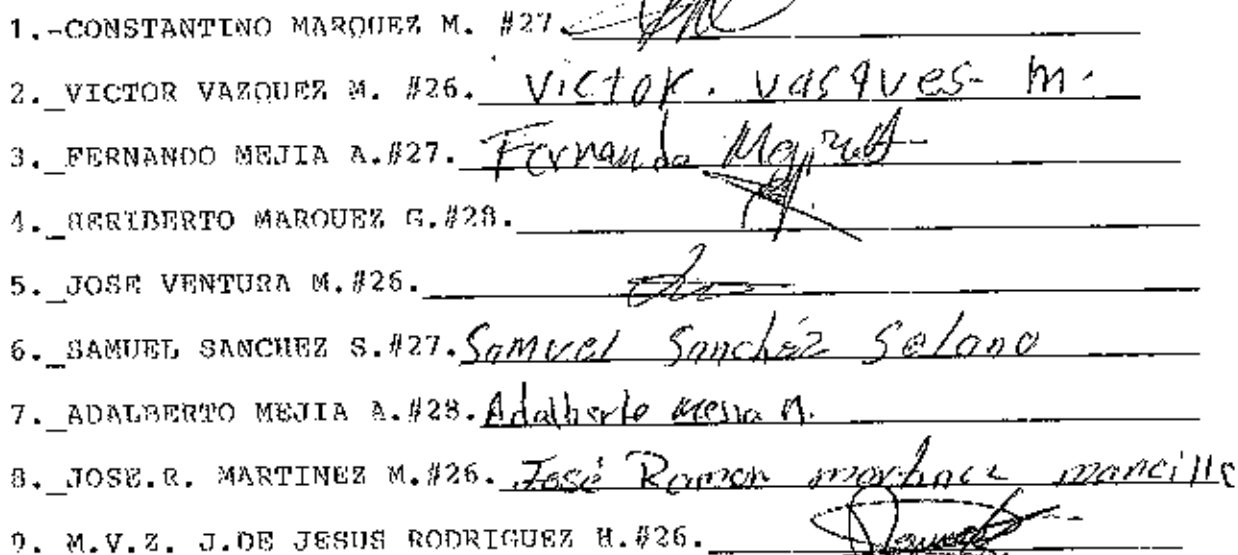 1.-CONSTANTINO MARQUEZ M. #27.
2._VICTOR VAZQUEZ M. #26. Victor. vasques- m.
3._FERNANDO MEJIA A.#27. Fernando
4._HERIBERTO MARQUEZ G.#28.
5._JOSE VENTURA M.#26.
6._SAMUEL SANCHEZ S.#27. Samuel Sanchéz Selano
7._ADALBERTO MEJIA A.#28. Adalberto Mejia A.
8._JOSE.R. MARTINEZ M.#26. José Ramon martinez mancilla
9. M.V.Z. J.DE JESUS RODRIGUEZ H.#26.